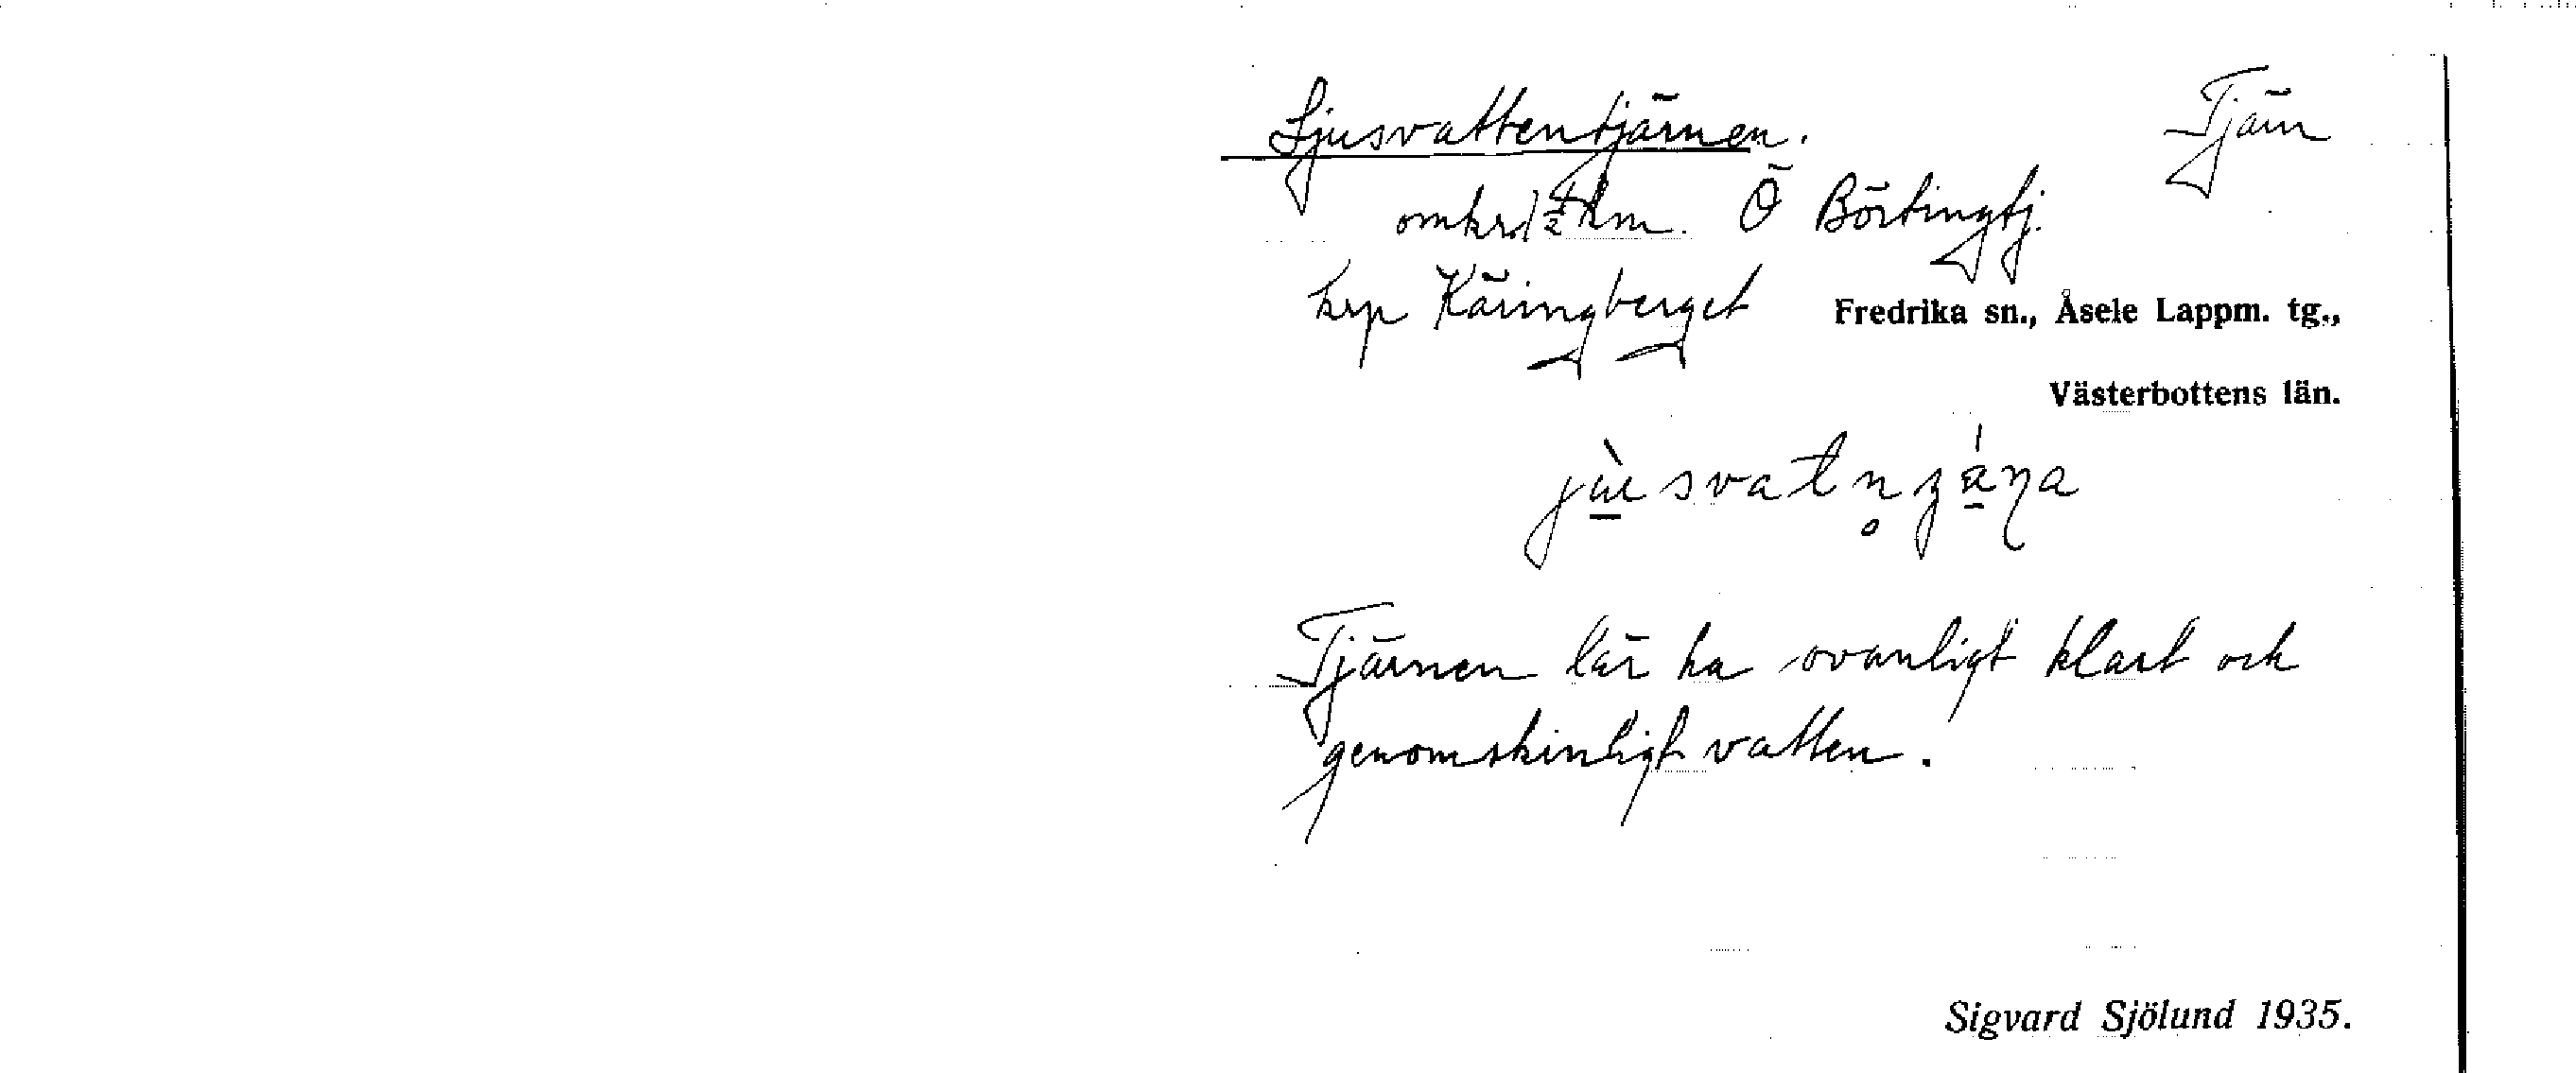 Ljusvattentjärnen. Tjärn
omkr. 1/2 km. Ö Börtingtj.
krp Käringberget Fredrika sn., Åsele Lappm. tg.,
Västerbottens län.
Tjärnen lär ha ovanligt klart och
genomskinligt vatten.
Sigvard Sjölund 1935.